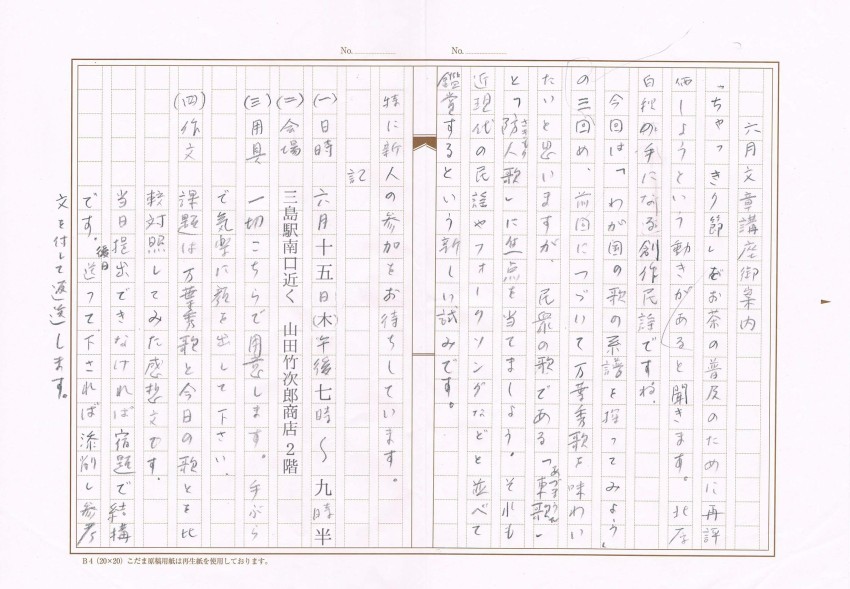 No.
No.
六月文章講座御案内
「ちゃっきり節」がお茶の普及のために再評
価しようという動きがあると聞きます。北原
白秋の手になる創作民謡ですね。
今回は「わが国の歌の系譜を探ってみよう」
の三回め、前回につづいて万葉秀歌を味わい
たいと思いますが、民衆の歌である「東歌」
あづまうた
と「防人歌」に焦点を当てましょう。それも
さきもり
近現代の民謡やフォークソングなどと並べて
鑑賞するという新しい試みです。
特に新人の参加をお待ちしています。
記
(一)日時 六月十五日(木)午後七時〜九時半
(二)会場 三島駅南口近く 山田竹次郎商店2階
(三)用具 一切こちらで用意します。手ぶら
で気楽に顔を出して下さい。
(四)作文 課題は万葉秀歌と今日の歌とを比
較対照してみた感想文です。
当日提出できなければ宿題で結構
です。後日送って下されば添削し参考
文を付して返送します。
B4(20×20)こだま原稿用紙は再生紙を使用しております。